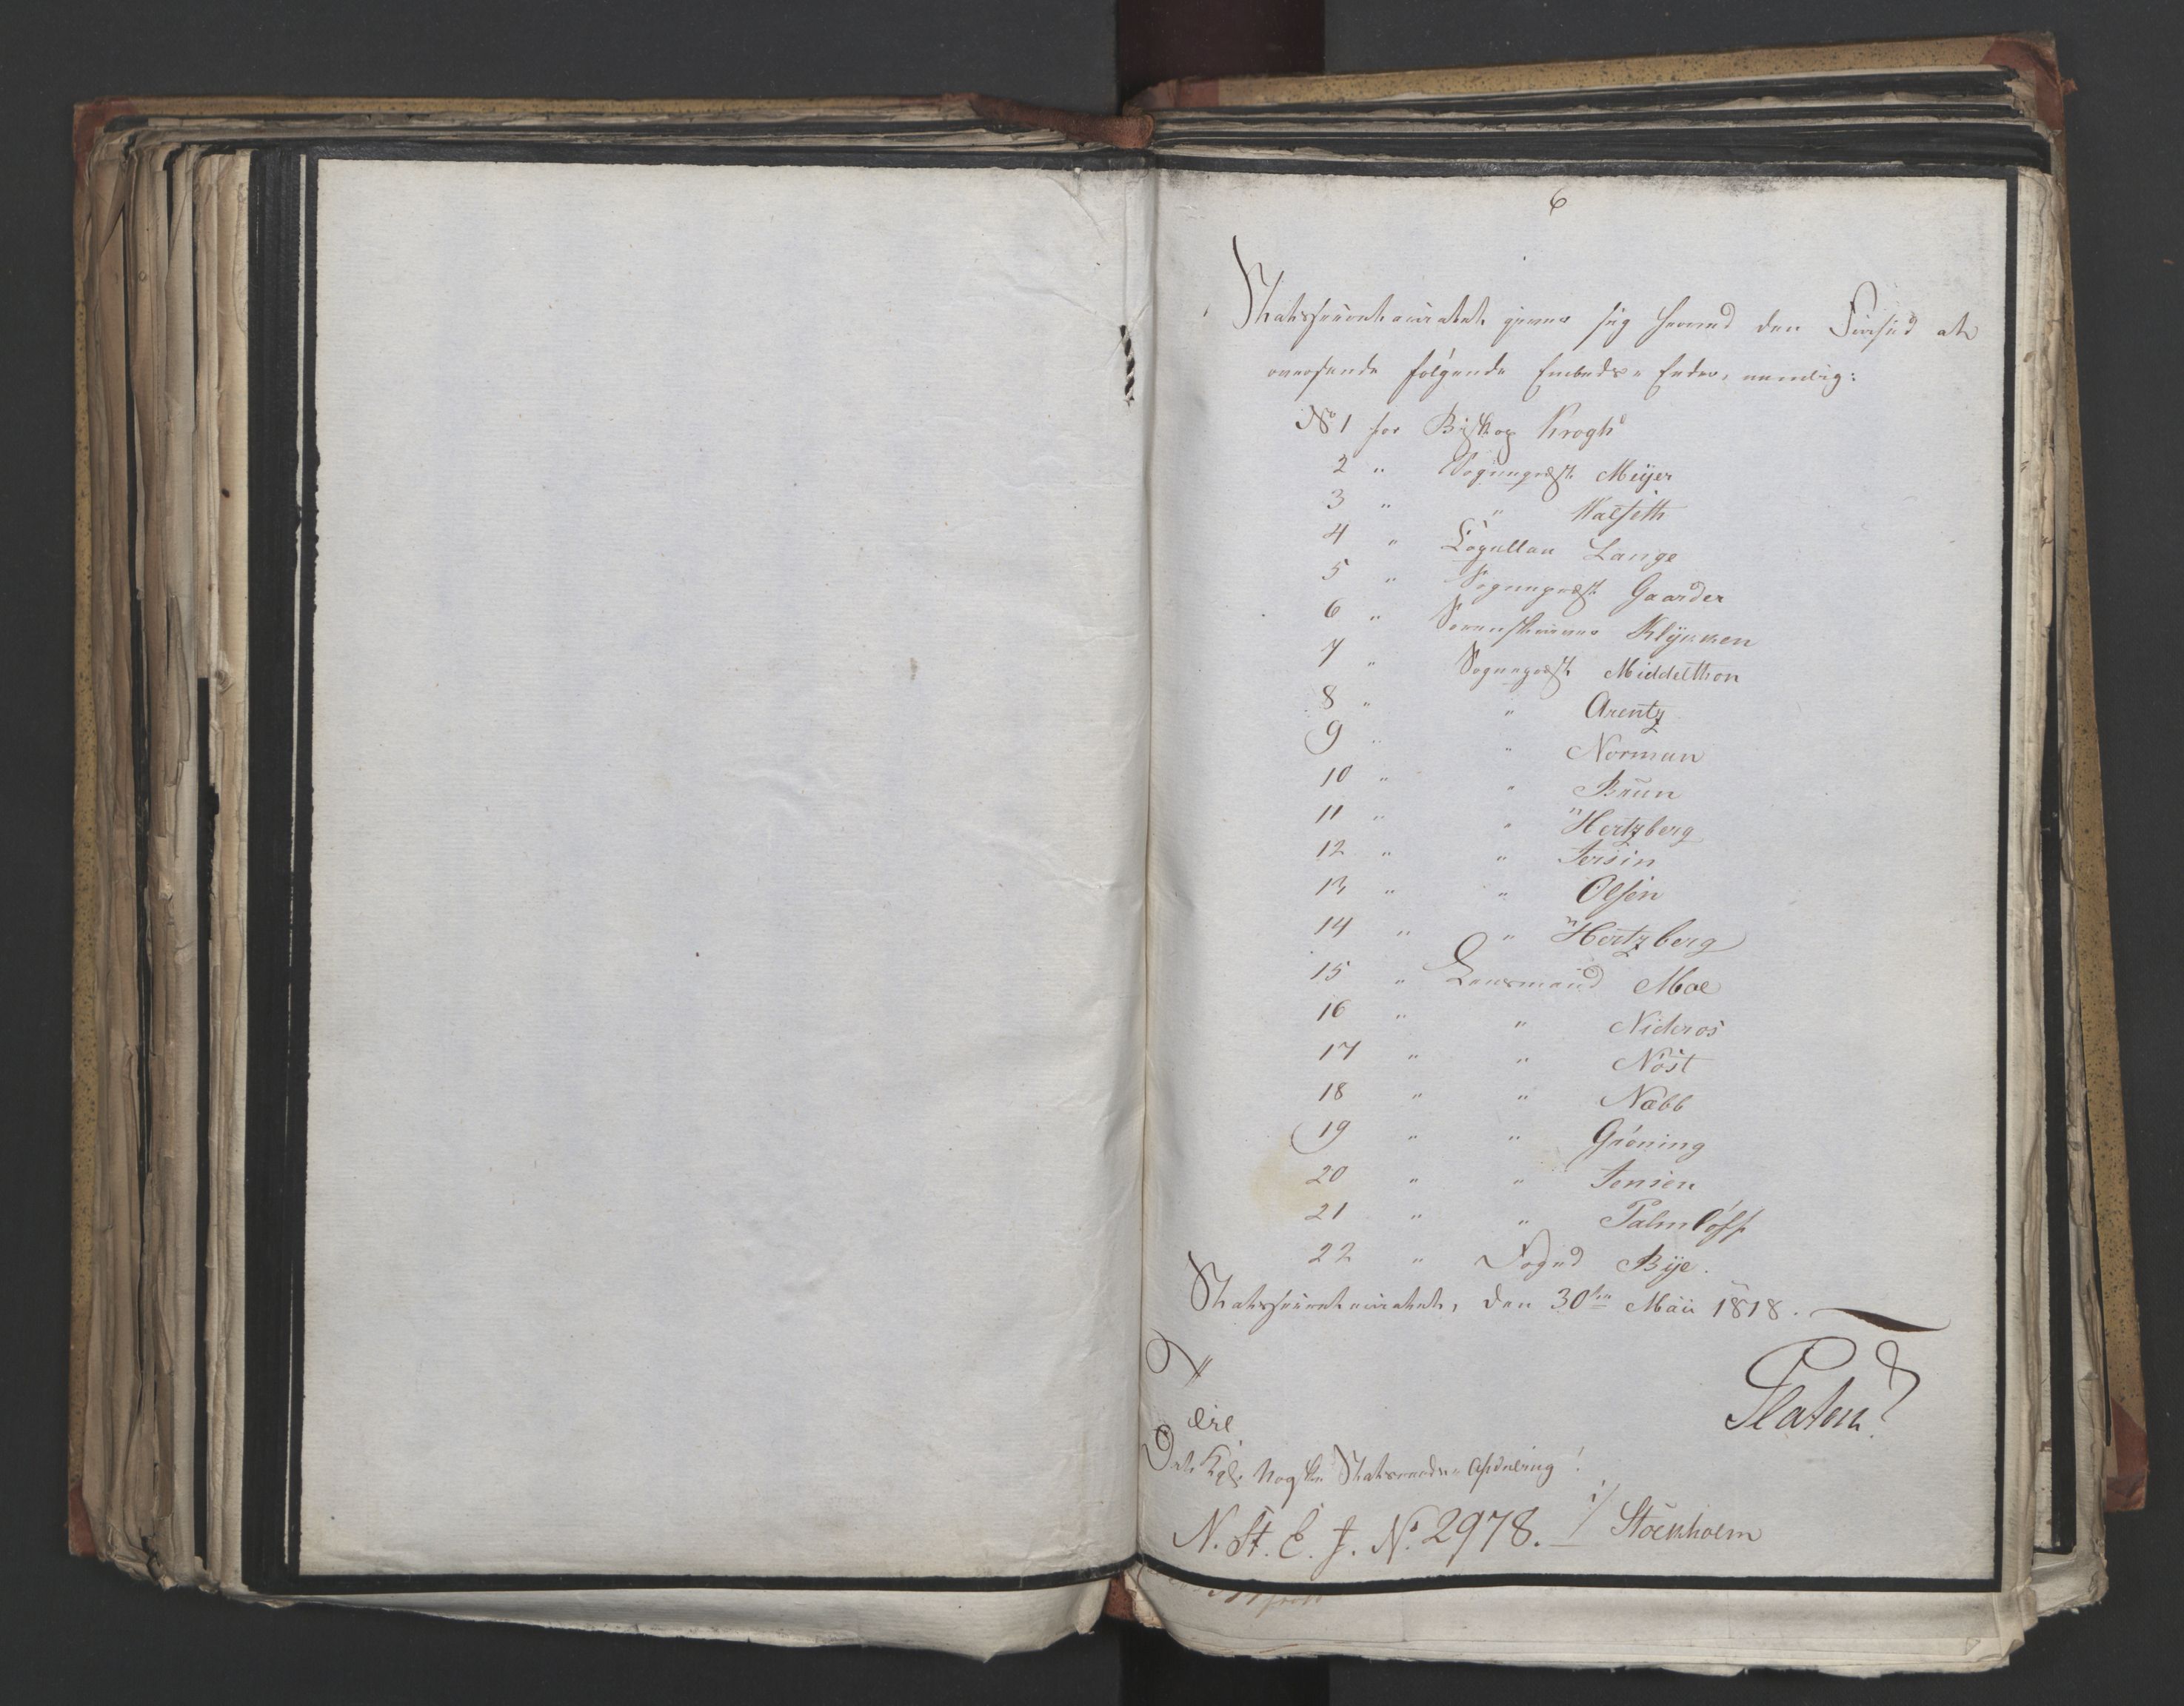 6
Statssecretariatet giver sig herved den Frihed at
oversende følgende Embeds-Eeder, nemlig:
No 1 for Biskop Krogh
2 " Sognepræst Meijer
3 " " Walseth
4 " Capellan Lange
5 " Sognepræst Gaarder
6 " Sorenskriver Klÿwen
7 " Sognepræst Middelthon
8 " " Arentz
9 " " Norman
10 " " Brun
11 " " Hertzberg
12 " " Jersin
13 " " Olsen
14 " " Hertzberg
15 " Lensmand Moe
16 " " Nideros
17 " " Nöst
18 " " Næbb
19 " " Grøning
20 " " Jensen
21 " " Palmlöff
22 " Foged Bÿe.
Statssecretariatet, den 30te Maii 1818.
Platen
Det Kgl. Norske Statsraads-Afdeling
i Stockholm
N. St. E. J. No. 2978.